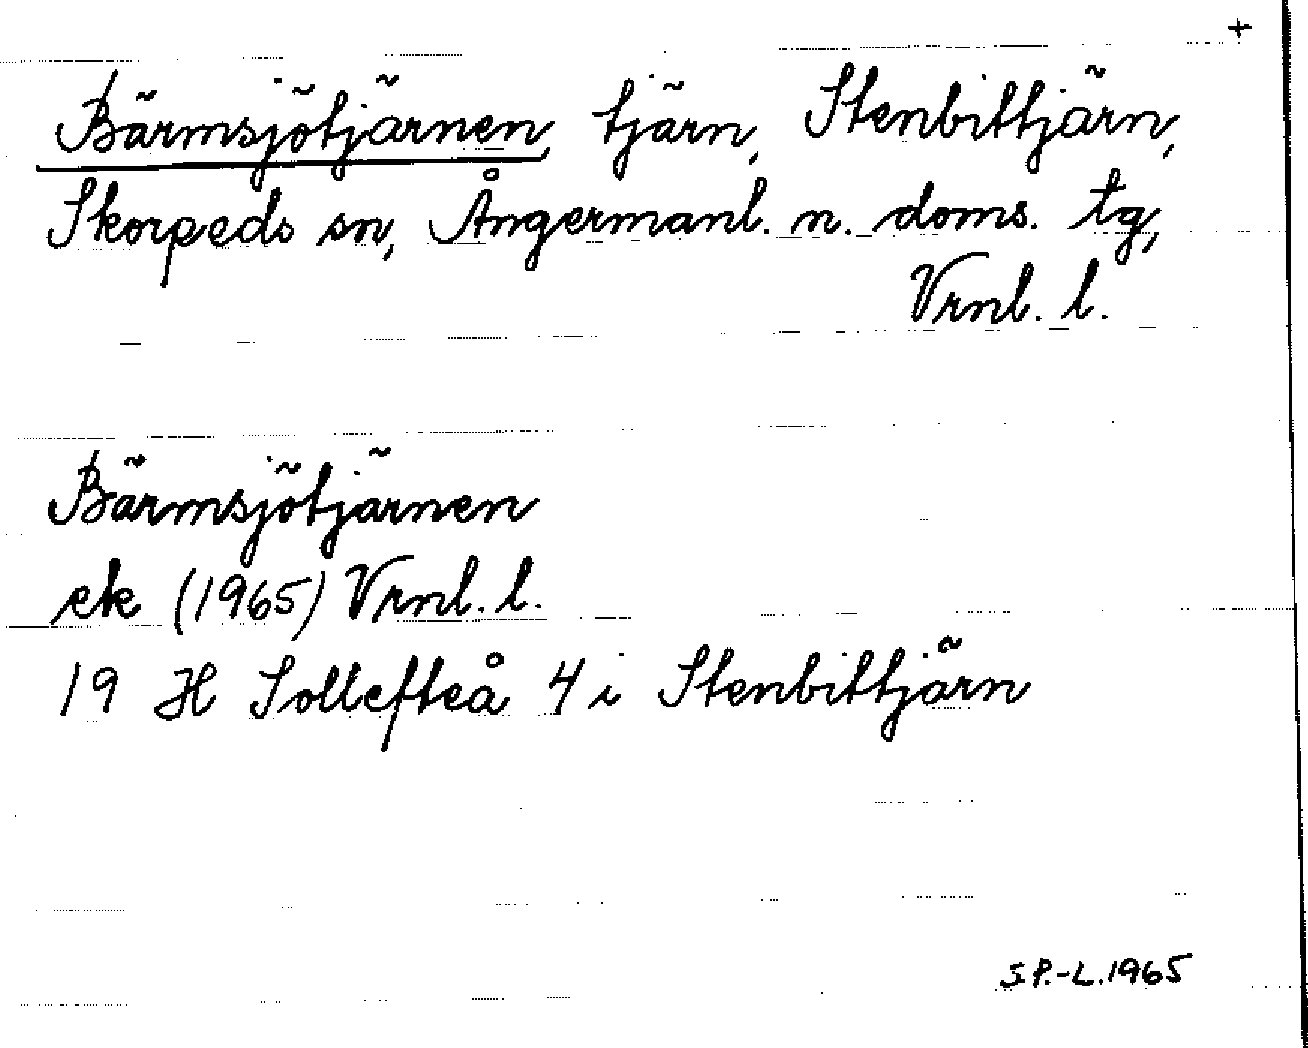 +
Bärmsjötjärnen, tjärn, Stenbittjärn,
Skorpeds sn, Ångermanl. n. doms. tg,
Vrnl. l.
Bärmsjötjärnen
ek (1965) Vrnl. l.
19 H Sollefteå 4 i Stenbittjärn
S.P.-L.1965